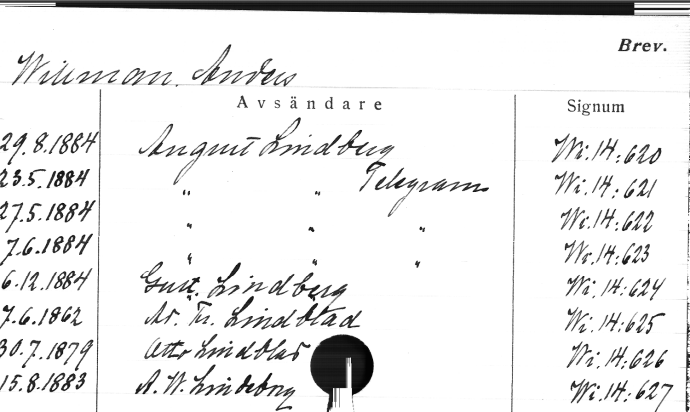 Brev.
Willman, Anders
Avsändare Signum
29.8.1884 August Lindberg Wi.14:620
23.5.1884 " " Telegram Wi.14:621
27.5.1884 " " " Wi.14:622
7.6.1884 " " " Wi.14:623
6.12.1884 Gust. Lindberg Wi.14:624
7.6.1862 Lindblad Wi.14:625
30.7.1879 Otto Lindblad Wi.14:626
15.8.1883 A. W. Lindeborg Wi.14:627